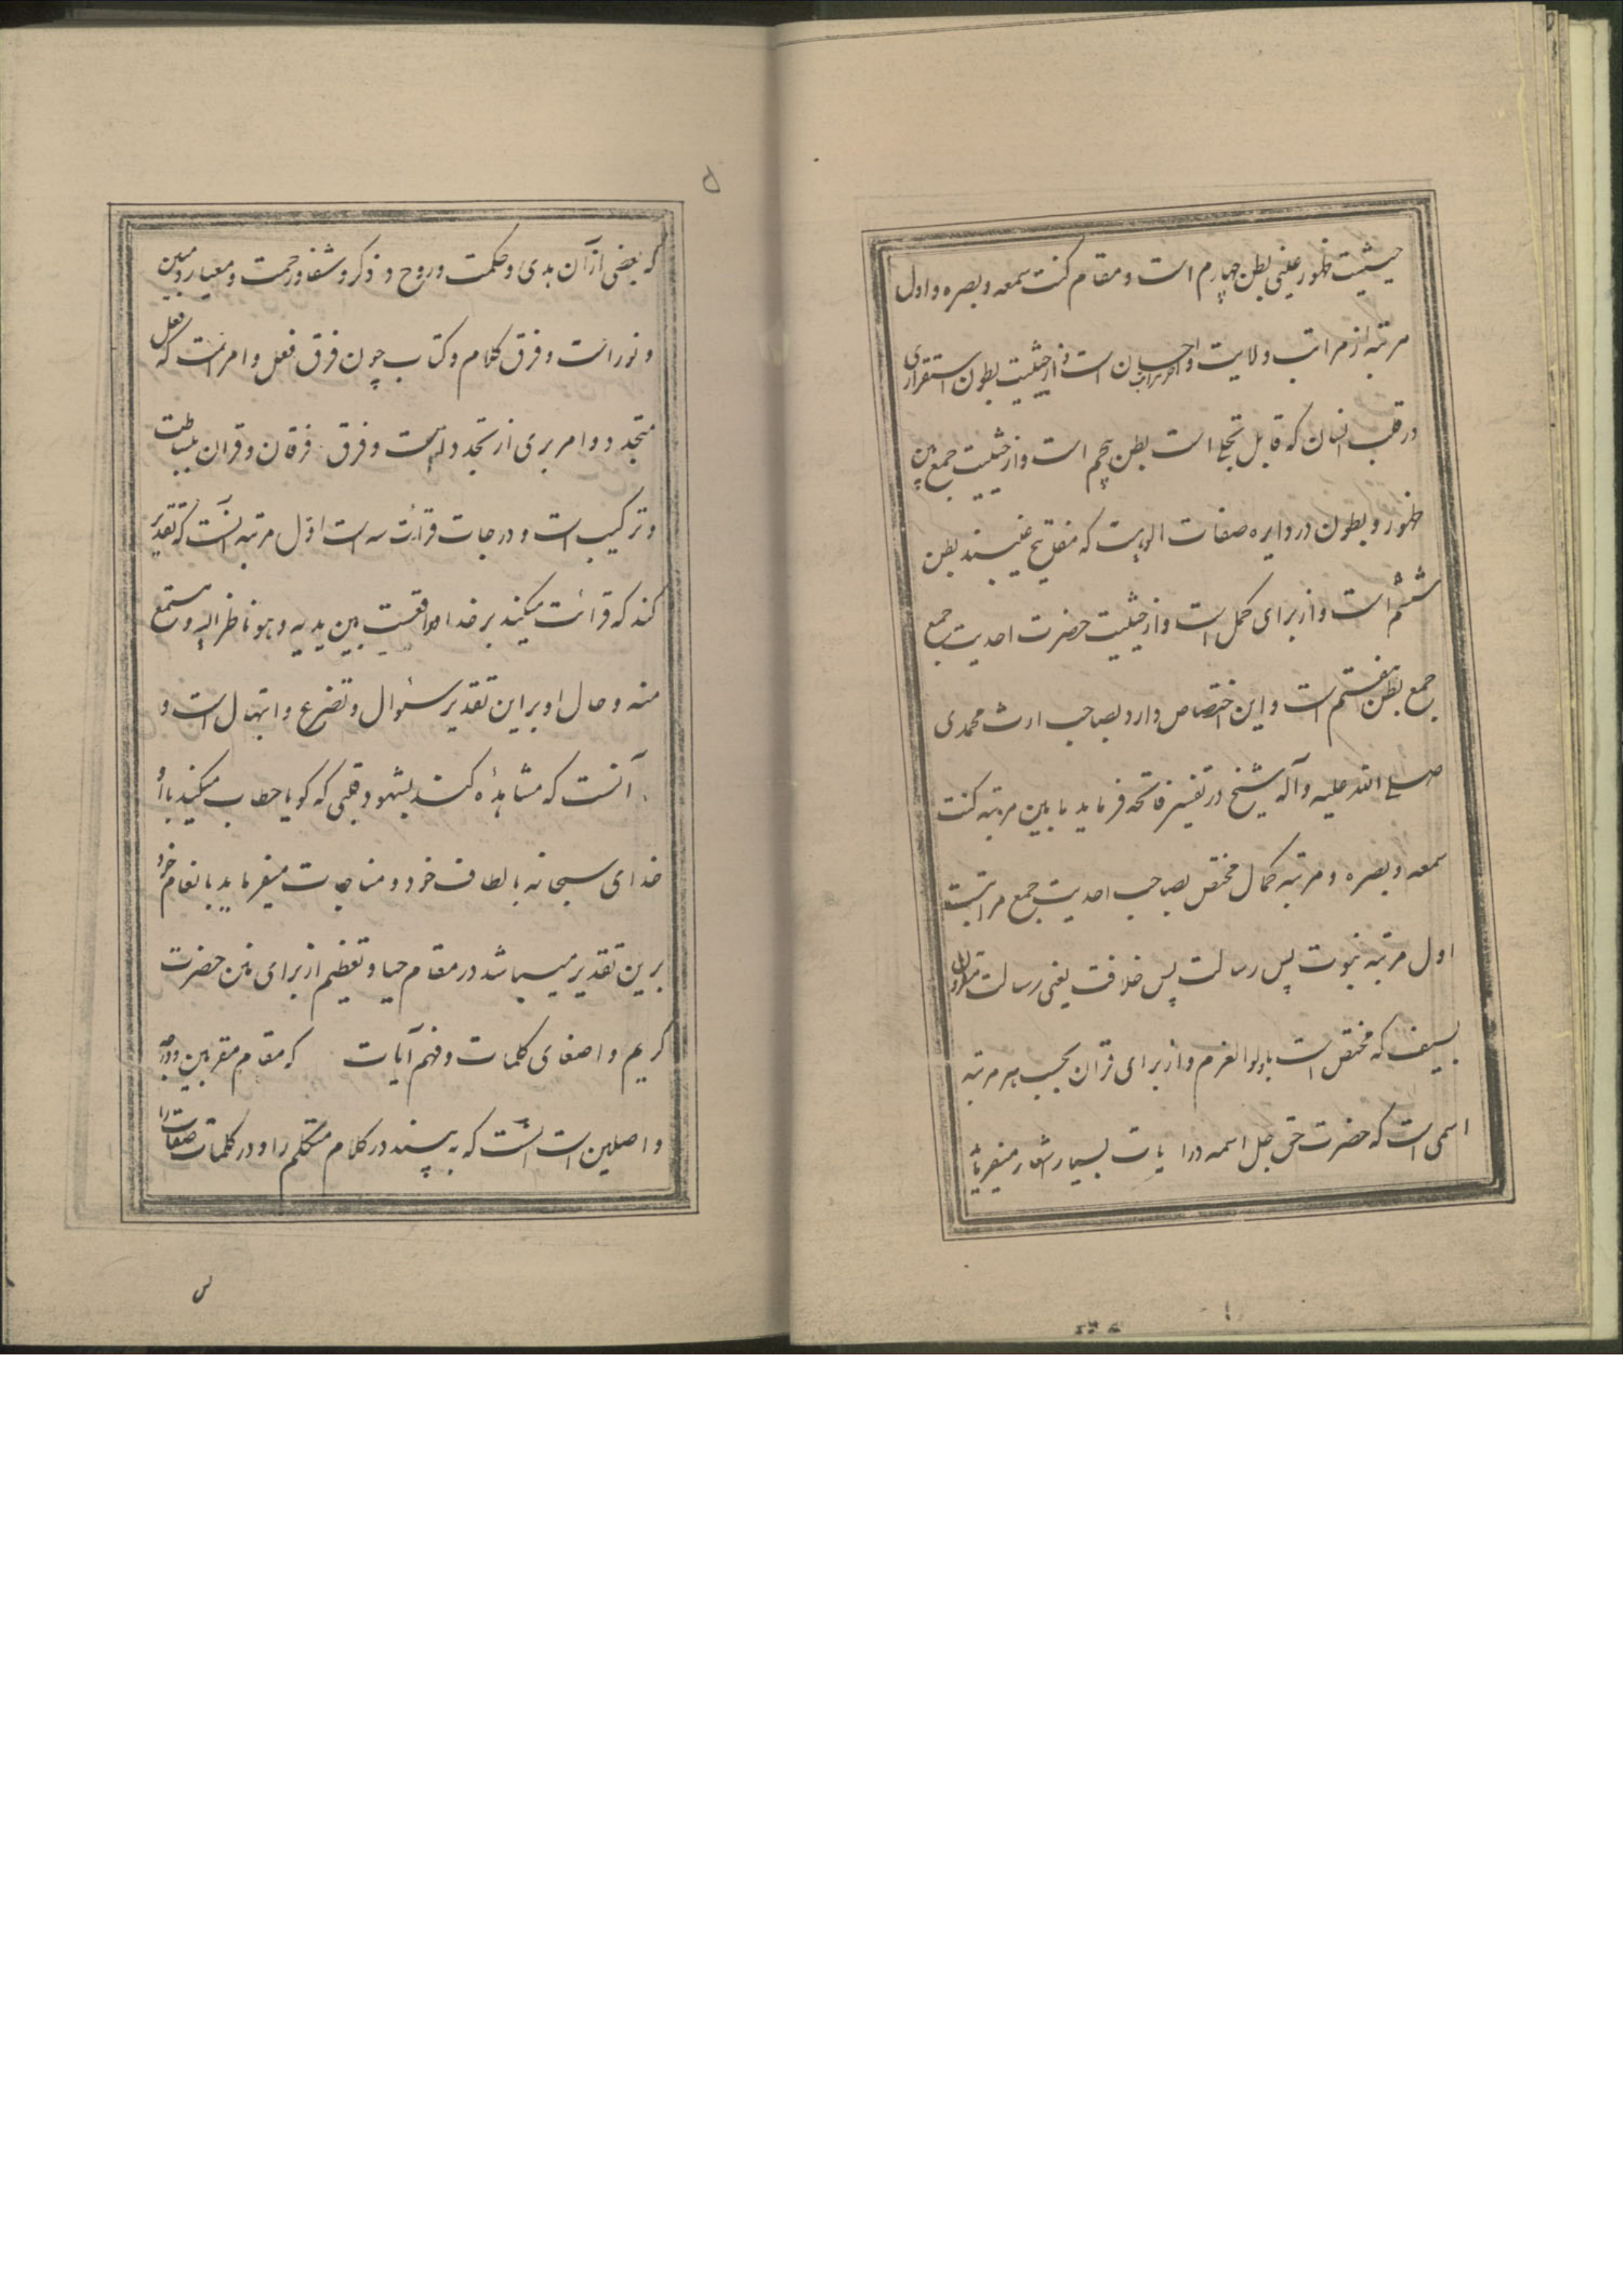 حیثیت ظهور علمی بطن چهارم است و مقام کنت سمعه و بصره و اول
مرتبه از مراتب ولایت و احسان است و از حیثیت بطون استقراری
در قلب انسان که قابل تجلی است بطن پنجم است و از حیثیت جمع بین
ظهور و بطون در دایره صفات الوهیت که مفاتیح غیبند بطن
ششم است و از برای کمل است و از حیثیت حضرت احدیت جمع
جمع بطن هفتم است و این اختصاص دارد بصاحب ارث محمدی
صلی الله علیه و آله شیخ در تفسیر فاتحه فرماید ما بین مرتبه کنت
سمعه و بصره و مرتبه کمال مختص بصاحب احدیت جمع مراتبست
اول مرتبه نبوت پس رسالت پس خلافت یعنی رسالت مقرون
بسیف که مختص است باولوا العزم و از برای قران بحسب هر مرتبه
اسمی است که حضرت حق جل اسمه در ایات بسیار اشعار میفرماید
۵
که بعضی از آن هدی و حکمت و روح و ذکر و شفا و رحمت و معیار و مبین
و نور است و فرق کلام و کتاب چون فرق فعل و امر است که فعل
متجدد و امر بری از تجدد است و فرق فرقان و قران بساطت
و ترکیب است و درجات قرائت سه است اول مرتبه آنست که تقدیر
کند که قرائت میکند بر خدا واقفست بین یدیه و هو ناظر الیه و مستمع
منه و حال او بر این تقدیر سئوال و تضرع و ابتهال است و
آنست که مشاهده کند بشهود قلبی که گویا خطاب میکند با او
خدای سبحانه بالطاف خود و مناجات میفرماید بانعام خود
برین تقدیر میباشد در مقام حیا و تعظیم از برای حضرت
کریم و اصغای کلمات و فهم آیات که مقام مقربین و
واصلین است آنست که به بیند در کلام متکلم را و در کلمات صفات را